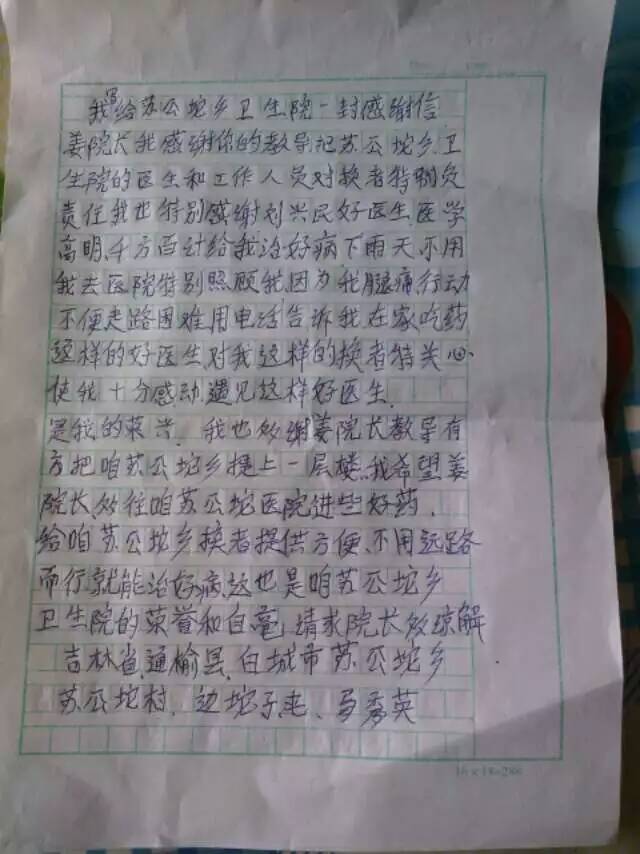 我写给苏公坨乡卫生院一封感谢信
姜院长我感谢你的教导把苏公坨乡卫
生院的医生和工作人员对换者特别负
责任我也特别感谢刘兴民好医生医学
高明,千方百计给我治好病下雨天不用
我去医院特别照顾我因为我腿痛行动
不便走路困难用电话告诉我在家吃药
这样的好医生对我这样的换者特关心
使我十分感动遇见这样好医生.
是我的荣兴.我也多谢姜院长教导有
方把咱苏公坨乡提上一层楼.我希望姜
院长多往咱苏公坨医院进些好药.
给咱苏公坨乡换者提供方便不用远路
而行就能治好病这也是咱苏公坨乡
卫生院的荣誉和自毫请求院长多谅解
吉林省通榆县白城市苏公坨乡
苏公坨村.边坨子屯、马秀英